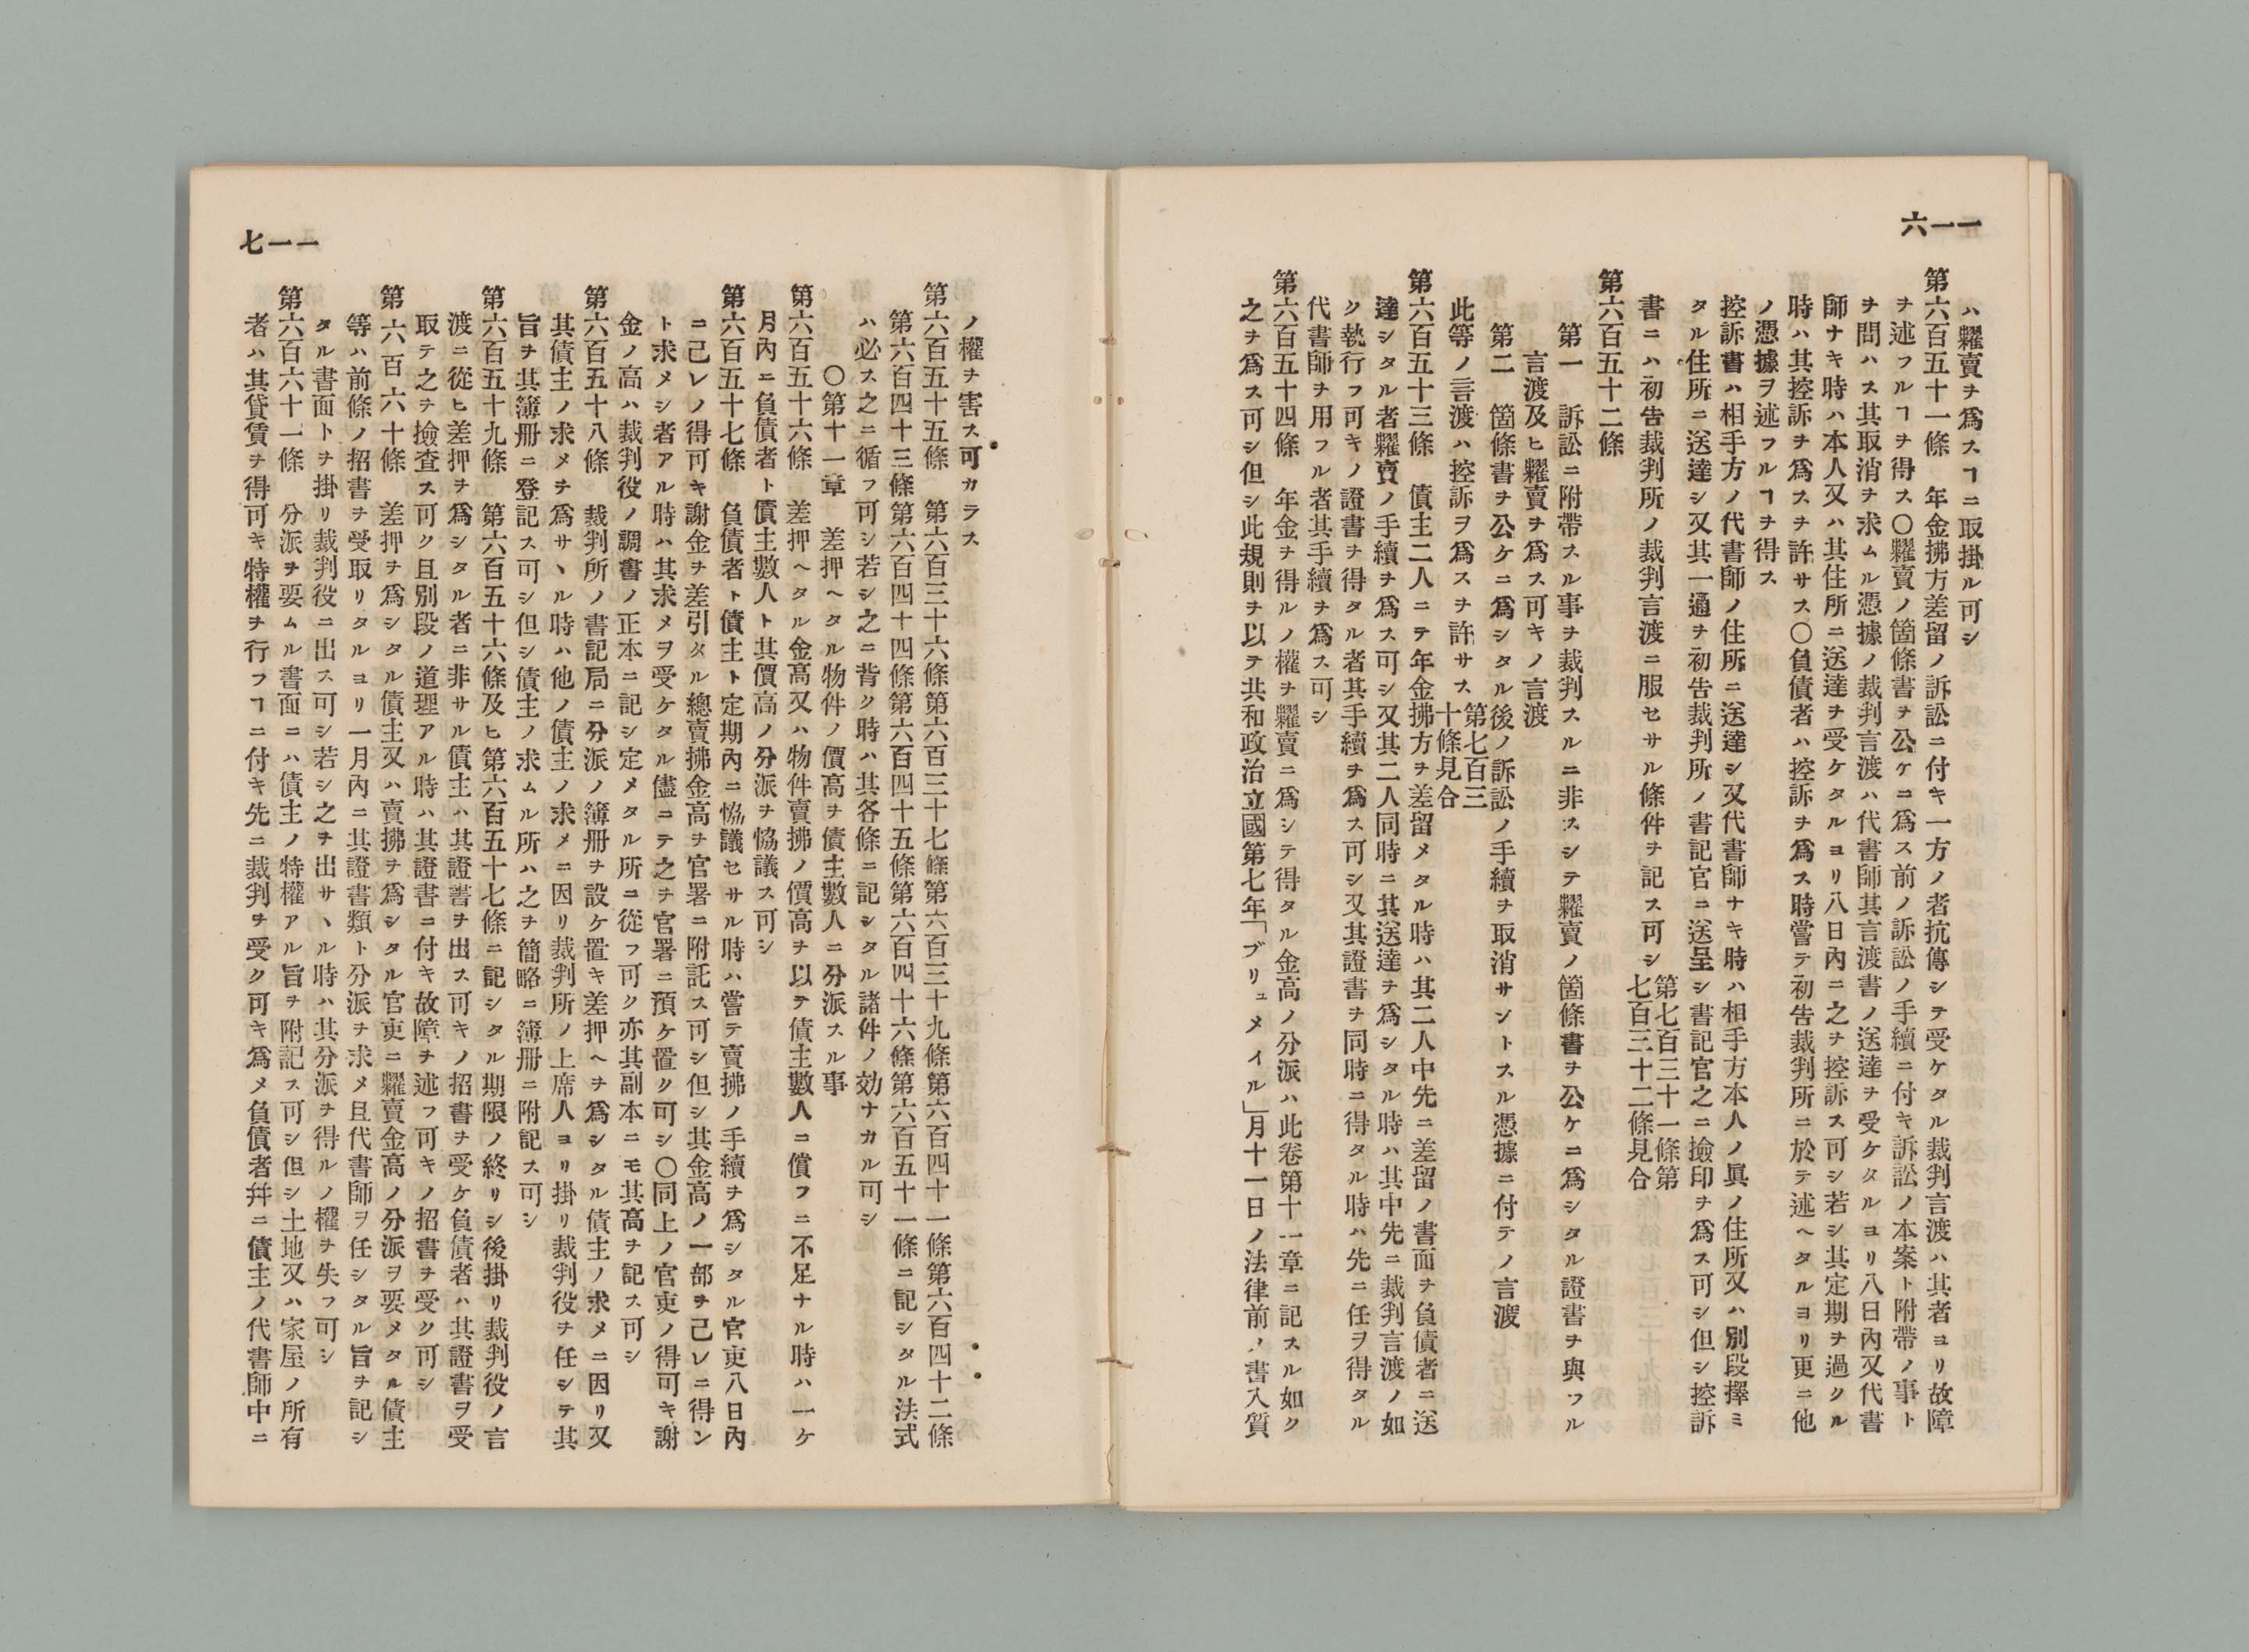 六一一
ハ糶賣ヲ爲スヿニ取掛ル可シ
第六百五十一條　年金拂方差留ノ訴訟ニ付キ一方ノ者抗傳シテ受ケタル裁判言渡ハ其者ヨリ故障
ヲ述フルヿヲ得ス〇糶賣ノ箇條書ヲ公ケニ爲ス前ノ訴訟ノ手續ニ付キ訴訟ノ本案ト附帶ノ事ト
ヲ問ハス其取消ヲ求ムル憑據ノ裁判言渡ハ代書師其言渡書ノ送達ヲ受ケタルヨリ八日內又代書
師ナキ時ハ本人又ハ其住所ニ送達ヲ受ケタルヨリ八日內ニ之ヲ控訴ス可シ若シ其定期ヲ過クル
時ハ其控訴ヲ爲スヲ許サス〇負債者ハ控訴ヲ爲ス時嘗テ初告裁判所ニ於テ述ヘタルヨリ更ニ他
ノ憑據ヲ述フルヿヲ得ス
控訴書ハ相手方ノ代書師ノ住所ニ送達シ又代書師ナキ時ハ相手方本人ノ眞ノ住所又ハ別段擇ミ
タル住所ニ送達シ又其一通ヲ初告裁判所ノ書記官ニ送呈シ書記官之ニ撿印ヲ爲ス可シ但シ控訴
書ニハ初告裁判所ノ裁判言渡ニ服セサル條件ヲ記ス可シ 第七百三十一條第七百三十二條見合
第六百五十二條
第一　訴訟ニ附帶スル事ヲ裁判スルニ非スシテ糶賣ノ箇條書ヲ公ケニ爲シタル證書ヲ與フル
言渡及ヒ糶賣ヲ爲ス可キノ言渡
第二　箇條書ヲ公ケニ爲シタル後ノ訴訟ノ手續ヲ取消サントスル憑據ニ付テノ言渡
此等ノ言渡ハ控訴ヲ爲スヲ許サス 第七百三十條見合
第六百五十三條　債主二人ニテ年金拂方ヲ差留メタル時ハ其二人中先ニ差留ノ書面ヲ負債者ニ送
達シタル者糶賣ノ手續ヲ爲ス可シ又其二人同時ニ其送達ヲ爲シタル時ハ其中先ニ裁判言渡ノ如
ク執行フ可キノ證書ヲ得タル者其手續ヲ爲ス可シ又其證書ヲ同時ニ得タル時ハ先ニ任ヲ得タル
代書師ヲ用フル者其手續ヲ爲ス可シ
第六百五十四條　年金ヲ得ルノ權ヲ糶賣ニ爲シテ得タル金高ノ分派ハ此卷第十一章ニ記スル如ク
之ヲ爲ス可シ但シ此規則ヲ以テ共和政治立國第七年「ブリュメイル」月十一日ノ法律前ノ書入質
七一一
ノ權ヲ害ス可カラス
第六百五十五條　第六百三十六條第六百三十七條第六百三十九條第六百四十一條第六百四十二條
第六百四十三條第六百四十四條第六百四十五條第六百四十六條第六百五十一條ニ記シタル法式
ハ必ス之ニ循フ可シ若シ之ニ背ク時ハ其各條ニ記シタル諸件ノ効ナカル可シ
〇第十一章　差押ヘタル物件ノ價高ヲ債主數人ニ分派スル事
第六百五十六條　差押ヘタル金高又ハ物件賣拂ノ價高ヲ以テ債主數人ニ償フニ不足ナル時ハ一ケ
月內ニ負債者ト債主數人ト其價高ノ分派ヲ恊議ス可シ
第六百五十七條　負債者ト債主ト定期內ニ恊議セサル時ハ嘗テ賣拂ノ手續ヲ爲シタル官吏八日內
ニ己レノ得可キ謝金ヲ差引タル總賣拂金高ヲ官署ニ附託ス可シ但シ其金高ノ一部ヲ己レニ得ン
ト求メシ者アル時ハ其求メヲ受ケタル儘ニテ之ヲ官署ニ預ケ置ク可シ〇同上ノ官吏ノ得可キ謝
金ノ高ハ裁判役ノ調書ノ正本ニ記シ定メタル所ニ從フ可ク亦其副本ニモ其高ヲ記ス可シ
第六百五十八條　裁判所ノ書記局ニ分派ノ簿册ヲ設ケ置キ差押ヘヲ爲シタル債主ノ求メニ因リ又
其債主ノ求メヲ爲サヽル時ハ他ノ債主ノ求メニ因リ裁判所ノ上席人ヨリ掛リ裁判役ヲ任シテ其
旨ヲ其簿册ニ登記ス可シ但シ債主ノ求ムル所ハ之ヲ簡略ニ簿册ニ附記ス可シ
第六百五十九條　第六百五十六條及ヒ第六百五十七條ニ記シタル期限ノ終リシ後掛リ裁判役ノ言
渡ニ從ヒ差押ヲ爲シタル者ニ非サル債主ハ其證書ヲ出ス可キノ招書ヲ受ケ負債者ハ其證書ヲ受
取テ之ヲ撿査ス可ク且別段ノ道理アル時ハ其證書ニ付キ故障ヲ述フ可キノ招書ヲ受ク可シ
第六百六十條　差押ヲ爲シタル債主又ハ賣拂ヲ爲シタル官吏ニ糶賣金高ノ分派ヲ要メタル債主
等ハ前條ノ招書ヲ受取リタルヨリ一月內ニ其證書類ト分派ヲ求メ且代書師ヲ任シタル旨ヲ記シ
タル書面トヲ掛リ裁判役ニ出ス可シ若シ之ヲ出サヽル時ハ其分派ヲ得ルノ權ヲ失フ可シ
第六百六十一條　分派ヲ要ムル書面ニハ債主ノ特權アル旨ヲ附記ス可シ但シ土地又ハ家屋ノ所有
者ハ其貸賃ヲ得可キ特權ヲ行フヿニ付キ先ニ裁判ヲ受ク可キ爲メ負債者幷ニ債主ノ代書師中ニ